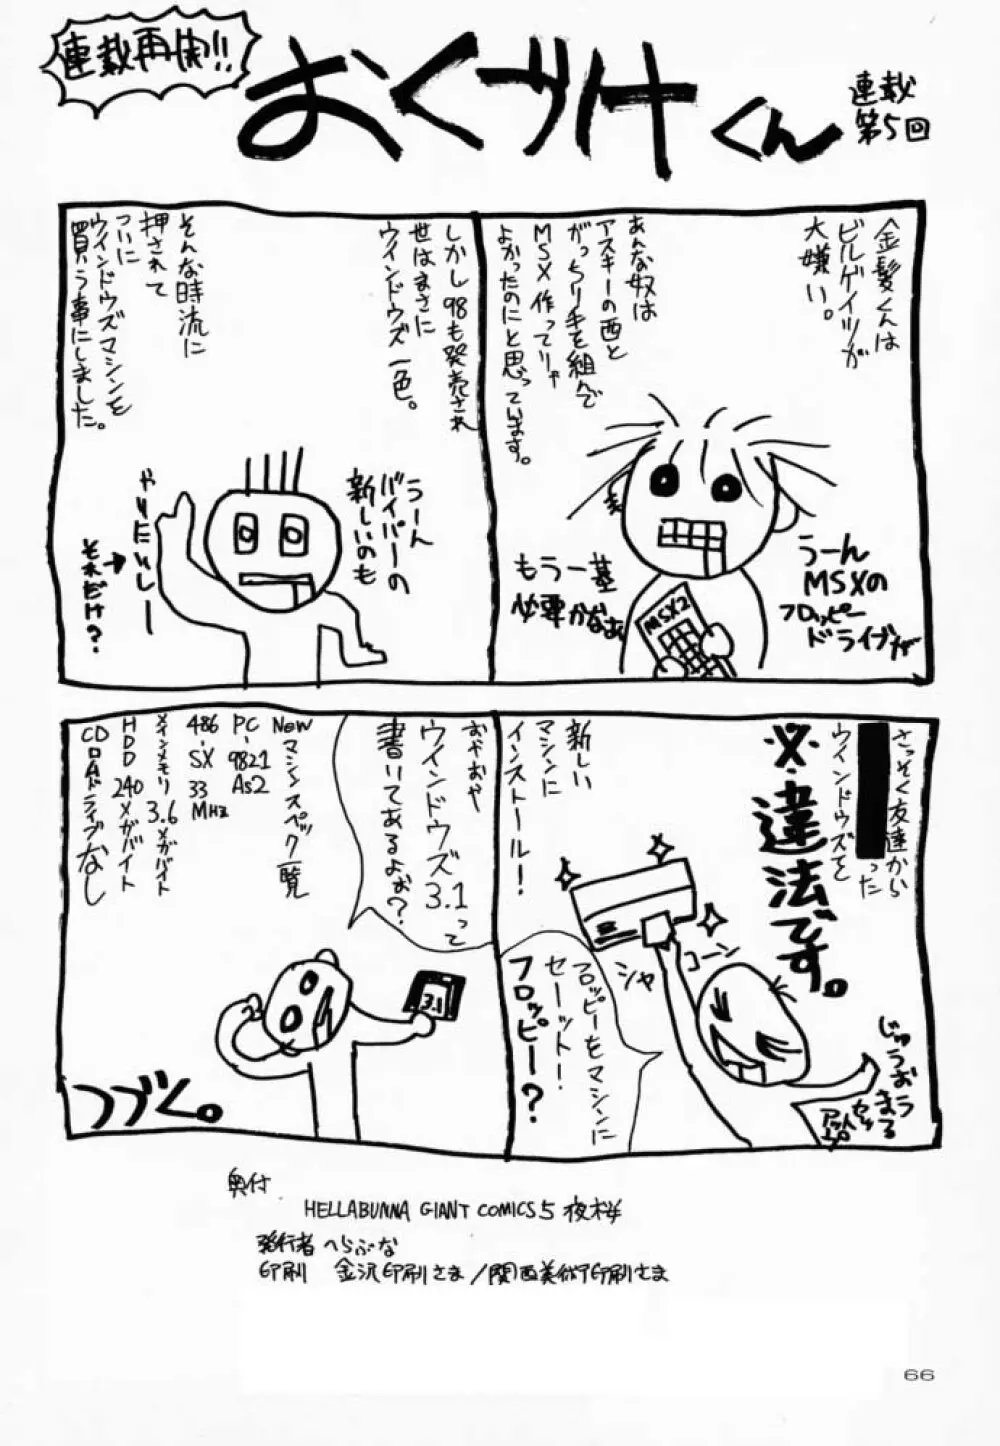 連載再開!!
おくづけくん
連載
第5回
金髪くんは
ビルゲイツが
大嫌い。
あんな奴は
アスキーの西と
がっちり手を組んで
MSX作ってりゃ
よかったのにと思っています。
うーん
MSXの
フロッピー
ドライブが
もう一基
必要かなぁ
MSX2
しかし98も発売され
世はまさに
ウインドウズ一色。
そんな時流に
押されて
ついに
ウインドウズマシンを
買う事にしました。
うーん
バイパーの
新しいのも
やりたいしー
それだけ?
さっそく友達から
った
ウインドウズを
※違法です。
新しい
マシンに
インストール!
シャ
コーン
フロッピーをマシンに
セーット!
フロッピー?
おやおや
ウインドウズ3.1って
書いてあるよぉ?
3.1
Newマシンスペック一覧
PC-9821As2
486-SX 33MHz
メインメモリ 3.6メガバイト
HDD 240メガバイト
CDロムドライブなし
つづく。
奥付
HELLABUNNA GIANT COMICS 5 夜桜
発行者 へらぶな
印刷 金沢印刷さま/関西美術印刷さま
66